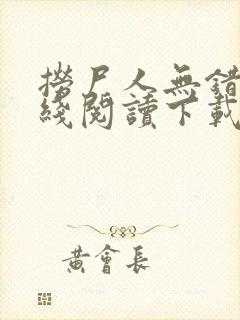 撈尸人無錯
綫閱讀下載
黃會長